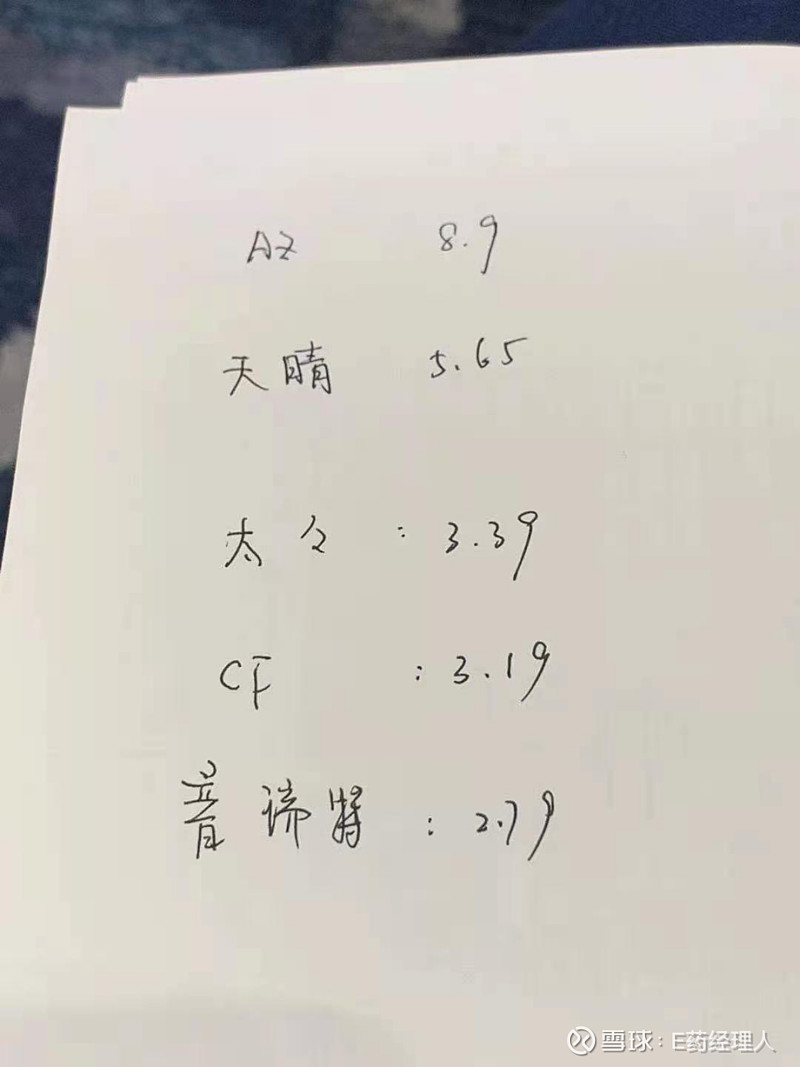 AZ 8.9
天晴 5.65
太々 : 3.39
CF : 3.19
普瑞特 : 2.79
雪球：E药经理人